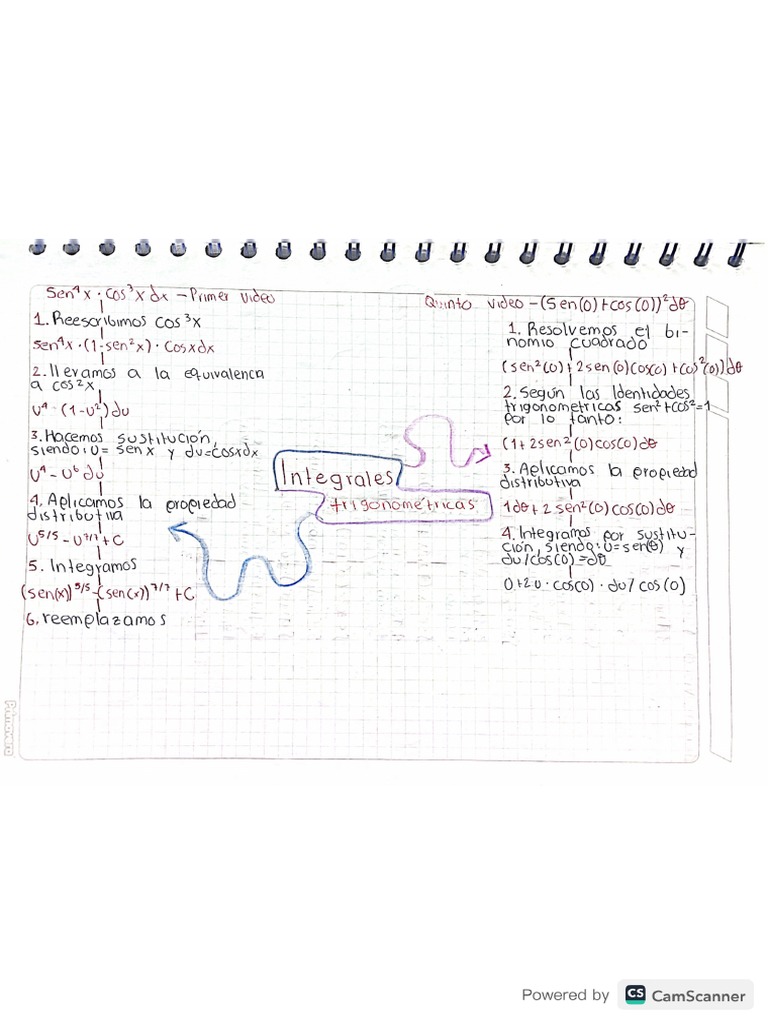 Sen⁴x · cos³x dx – Primer video
1. Reescribimos cos³x
sen⁴x · (1-sen²x) · cosxdx
2. llevamos a la equivalencia
a cos²x
U⁴ · (1-U²)du
3. Hacemos sustitución,
siendo: U= sen x y du=cosxdx
U⁴ - U⁶ du
4. Aplicamos la propiedad
distributiva
U⁵/⁵ - U⁷/⁷ + C
5. Integramos
(sen(x))⁵/⁵ - (sen(x))⁷/⁷ + C
6. reemplazamos
Integrales
trigonométricas
Quinto video – (Sen(0) + cos(0))² dθ
1. Resolvemos el bi-
nomio cuadrado
(sen²(0) + 2sen(0)cos(0) + cos²(0))dθ
2. Según las Identidades
trigonometricas sen²+cos²=1
por lo tanto:
(1+2sen²(0)cos(0)dθ
3. Aplicamos la propiedad
distributiva
1dθ + 2 sen²(0)cos(0)dθ
4. Integramos por sustitu-
ción, siendo: U=sen(θ) y
du/cos(0)=dθ
0+2u · cos(0) · du/cos(0)
Primavera
Powered by CS CamScanner